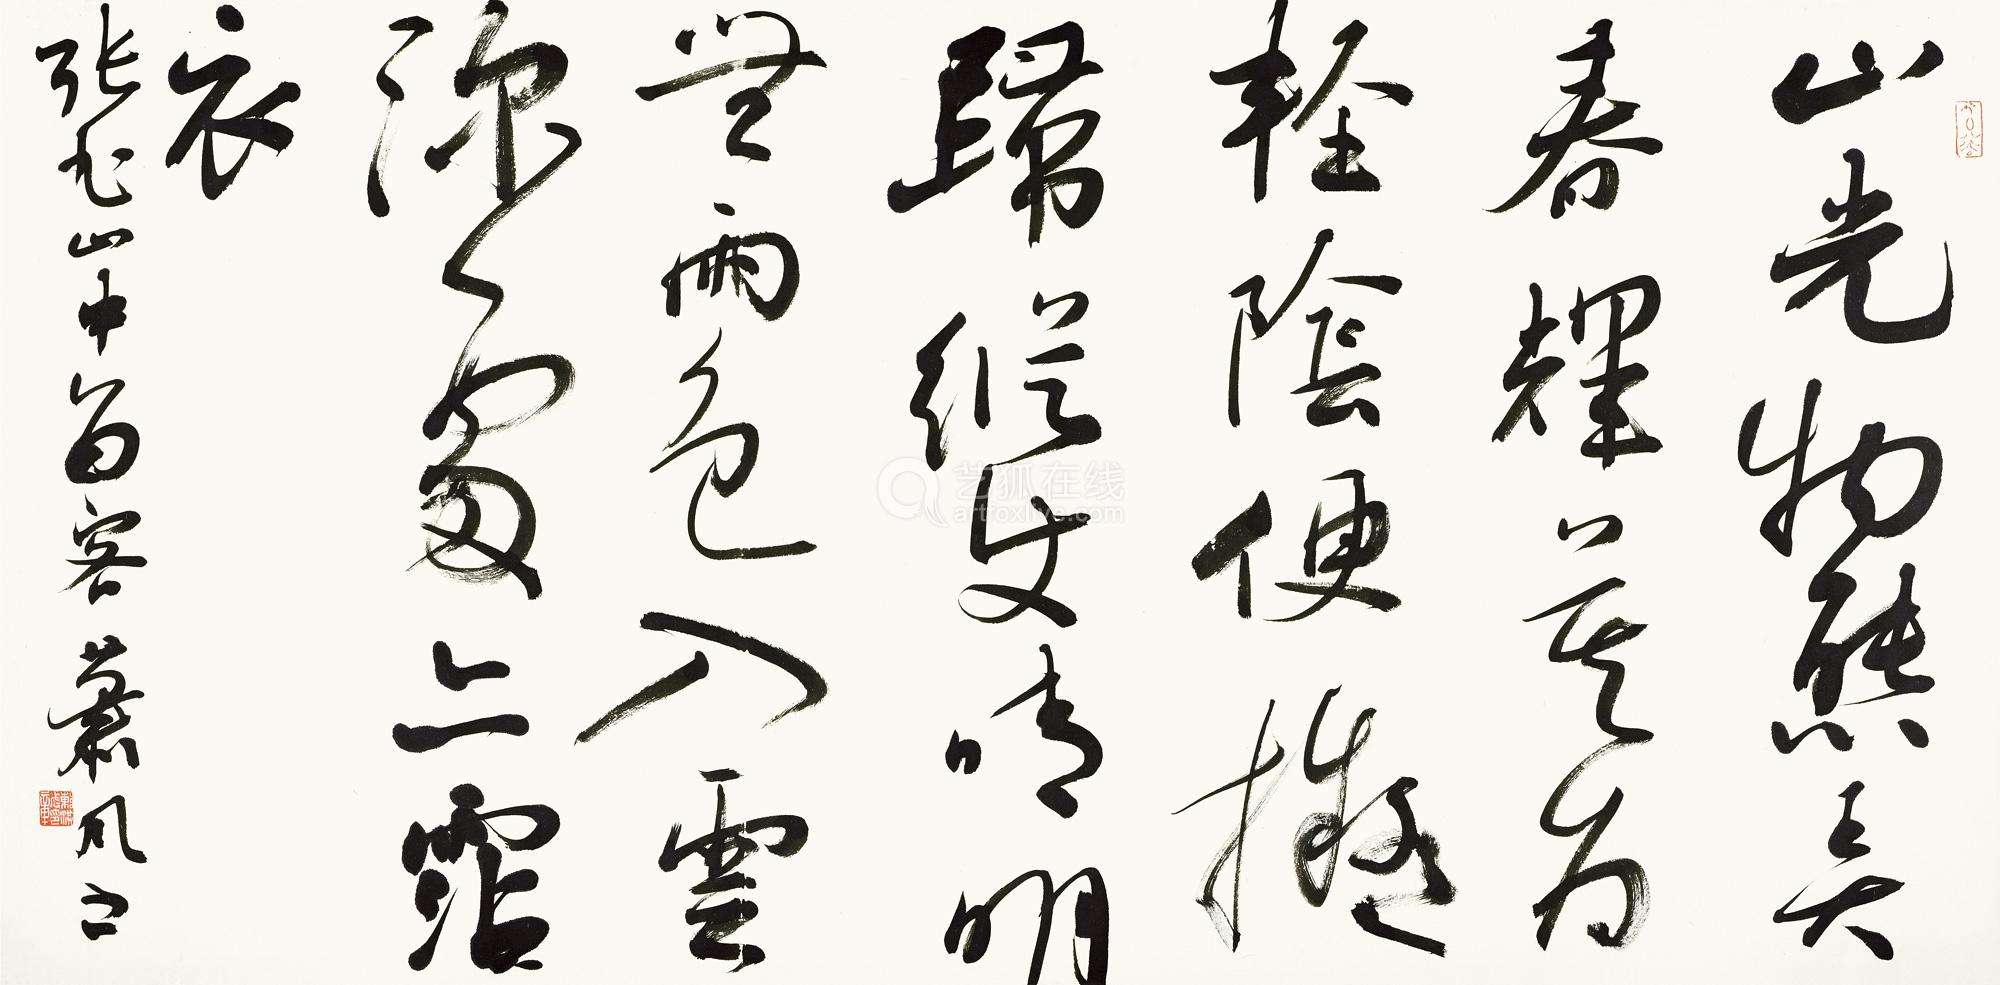 山光物態弄
春輝莫為
輕陰便擬
歸縱使晴明
無雨色入雲
深處亦霑
衣
張旭山中留客 蕭風书
艺狐在线
artfoxlive.com